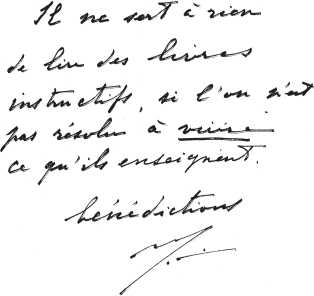 Il ne sert à rien
de lire des livres
instructifs, si l'on n'est
pas résolu à vivre
ce qu'ils enseignent.
bénédictions